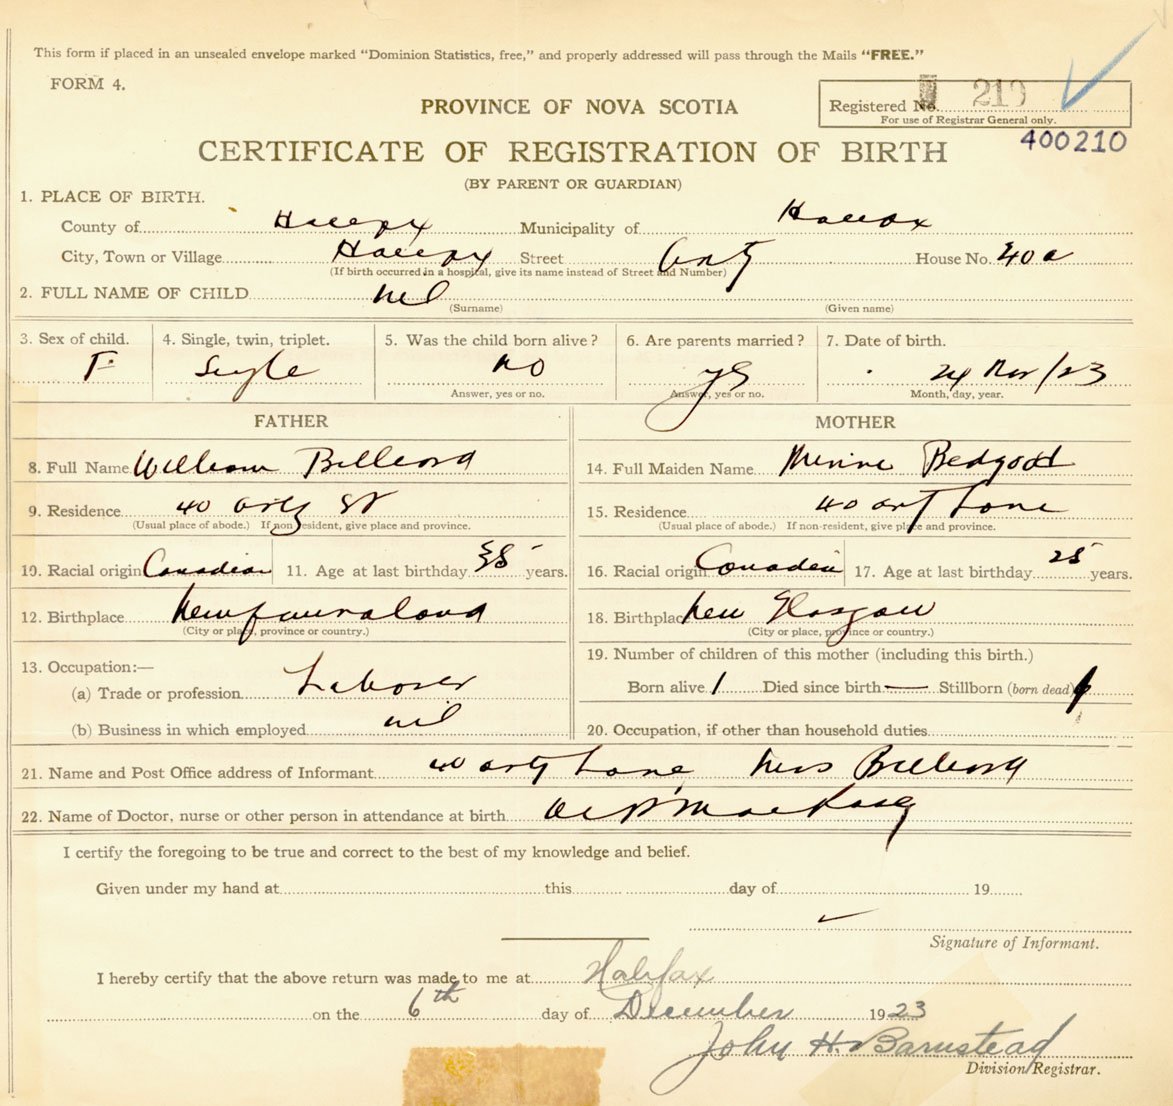 This form if placed in an unsealed envelope marked "Dominion Statistics, free," and properly addressed will pass through the Mails "FREE."
FORM 4.
PROVINCE OF NOVA SCOTIA
Registered No. 219
For use of Registrar General only.
400210
CERTIFICATE OF REGISTRATION OF BIRTH
(BY PARENT OR GUARDIAN)
1. PLACE OF BIRTH.
County of Halifax Municipality of Halifax
City, Town or Village Halifax Street House No. 40
(If birth occurred in a hospital, give its name instead of Street and Number)
2. FULL NAME OF CHILD nil
(Surname) (Given name)
3. Sex of child. 4. Single, twin, triplet. 5. Was the child born alive? 6. Are parents married? 7. Date of birth.
F Single no yes 24 Nov/23
Answer, yes or no. Answer, yes or no. Month, day, year.
FATHER MOTHER
8. Full Name William Billard 14. Full Maiden Name Minnie Bedgood
9. Residence 40 St 15. Residence 40 Lane
(Usual place of abode.) If non resident, give place and province. (Usual place of abode.) If non-resident, give place and province.
10. Racial origin Canadian 11. Age at last birthday years. 16. Racial origin Canadian 17. Age at last birthday 25 years.
12. Birthplace Newfoundland 18. Birthplace New Glasgow
(City or place, province or country.) (City or place, province or country.)
13. Occupation:— 19. Number of children of this mother (including this birth.)
(a) Trade or profession Laborer Born alive 1 Died since birth — Stillborn (born dead) 1
(b) Business in which employed nil 20. Occupation, if other than household duties
21. Name and Post Office address of Informant 40 Lane Mrs Billard
22. Name of Doctor, nurse or other person in attendance at birth
I certify the foregoing to be true and correct to the best of my knowledge and belief.
Given under my hand at this day of 19
Signature of Informant.
I hereby certify that the above return was made to me at Halifax
on the 6th day of December 1923
John H. Barnstead
Division Registrar.